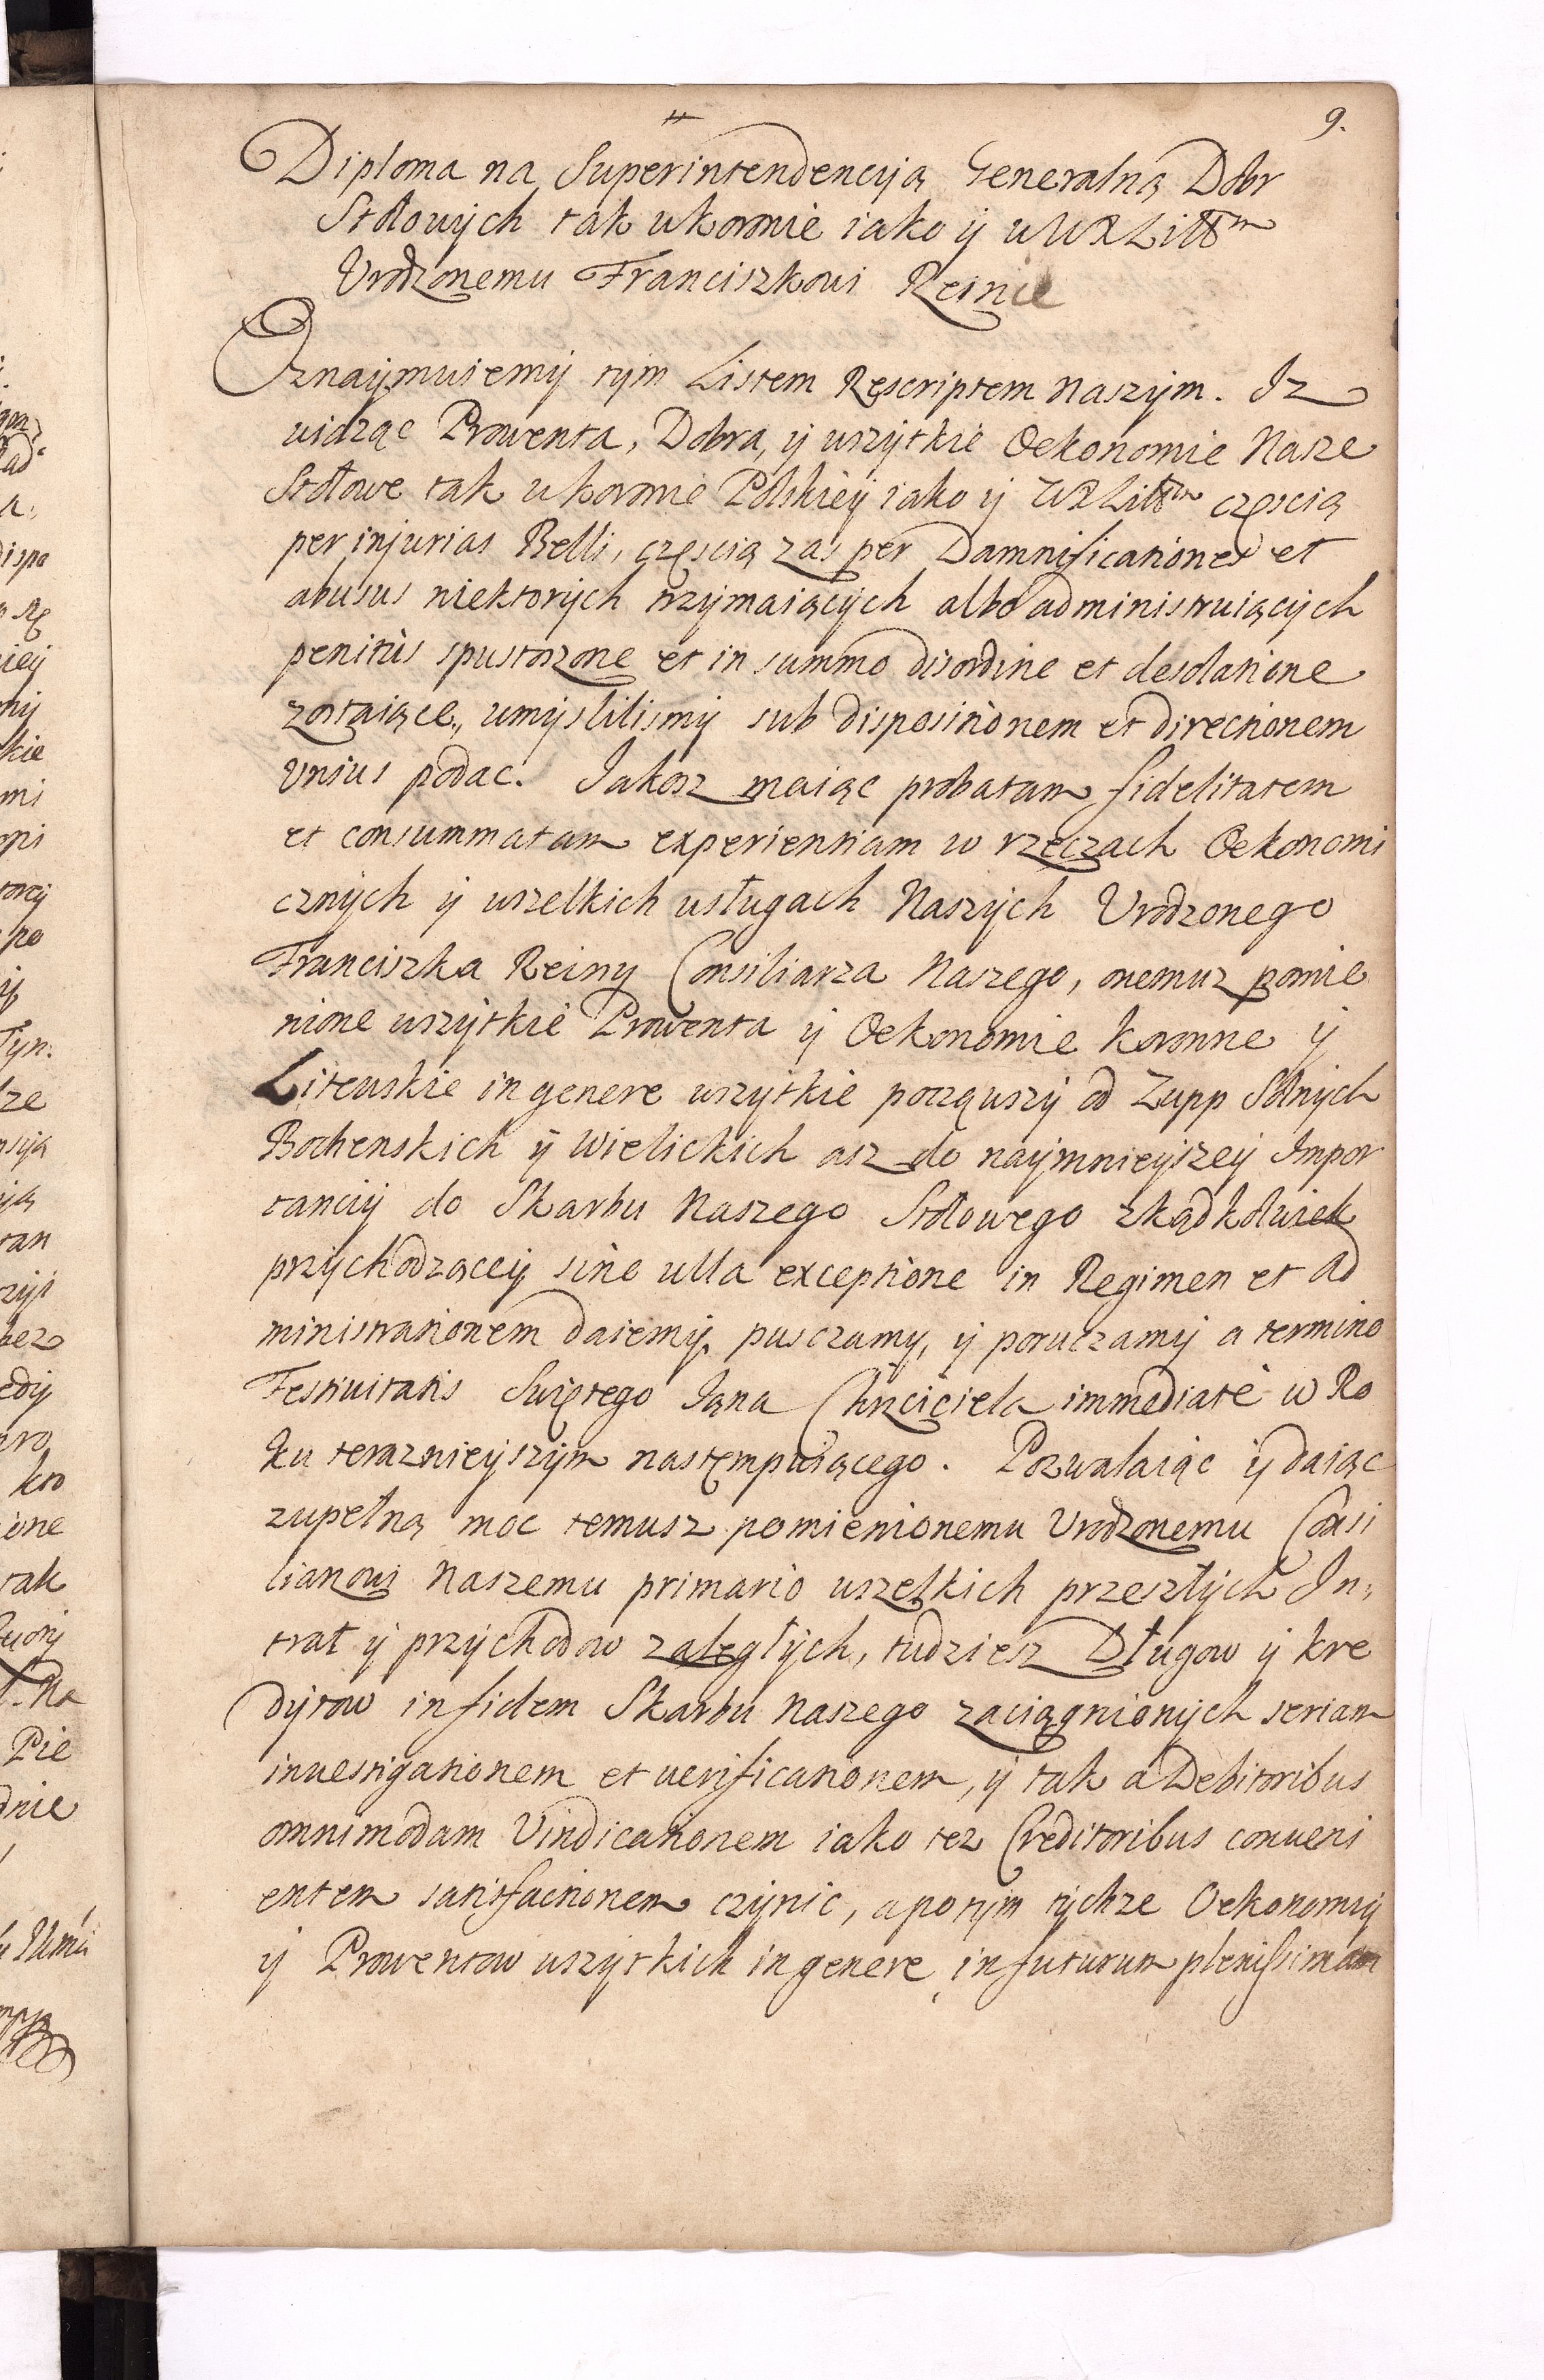 9.
Diploma na Superintendencyią Generalną Dobr
Stołowych tak w koronie iako y w WXLittm
Vrodzonemu Franciszkowi Reinie
Oznaymuiemy tym Listem Rescriptem Naszym. Iz
widząc Prowenta, Dobra, y wszytkie Oekonomie Nasze
Stołowe tak w koronie Polskiey iako y WXLittm częscią
per injurias Belli, częscią zas per Damnificationes et
abusus niektorych trzymaiących albo administruiących
penitùs spustoszone et in summo disordine et desolatione
zostaiące, umyslilismy sub dispositionem et directionem
vnius podac. Jakosz maiąc probatam fidelitatem
et consummatam experientiam w rzeczach Oekonomi
cznych y wszelkich usługach Naszych Vrodzonego
Franciszka Reiny Consiliarza Naszego, onemuz pomie
nione wszytkie Prowenta y Oekonomie koronne y
Litewskie in genere wszytkie począwszy od Zupp Solnych
Bochenskich y Wielickich asz do naymnieyszey Impor
tanciy do Skarbu Naszego Stołowego zkądkolwiek
przychodzącey sine ulla exceptione in Regimen et Ad
ministrationem daiemy, pusczamy, y poruczamy a termino
Festiuitatis Swiętego Jana Chrzciciela immediatè w Ro
ku teraznieyszym nastempuiącego. Pozwalaiąc y daiąc
zupełną moc temusz pomienionemu Vrodzonemu Consi
liarowi Naszemu primario wszelkich przeszłych In,
trat y przychodow zaległych, tudziesz Długow y kre
dytow in fidem Skarbu Naszego zaciągnionych seriam
inuestigationem et uerificationem, y tak a Debitoribus
omnimodam Vindicationem iako tez Creditoribus conueni
entem satisfactionem czynic, a potym tychze Oekonomiy
y Prowentow wszytkich in genere in futurum plenissimam